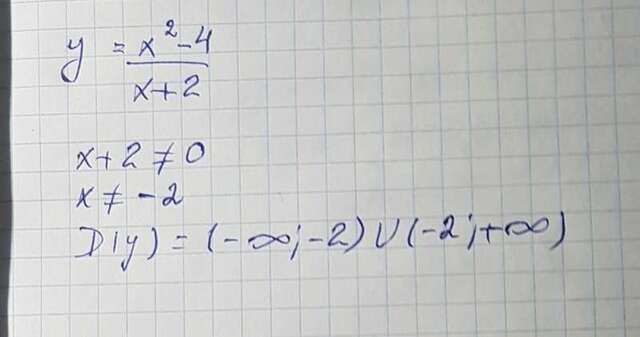 y = x²-4 / x+2
x+2≠0
x≠-2
D(y) = (-∞;-2)∪(-2;+∞)